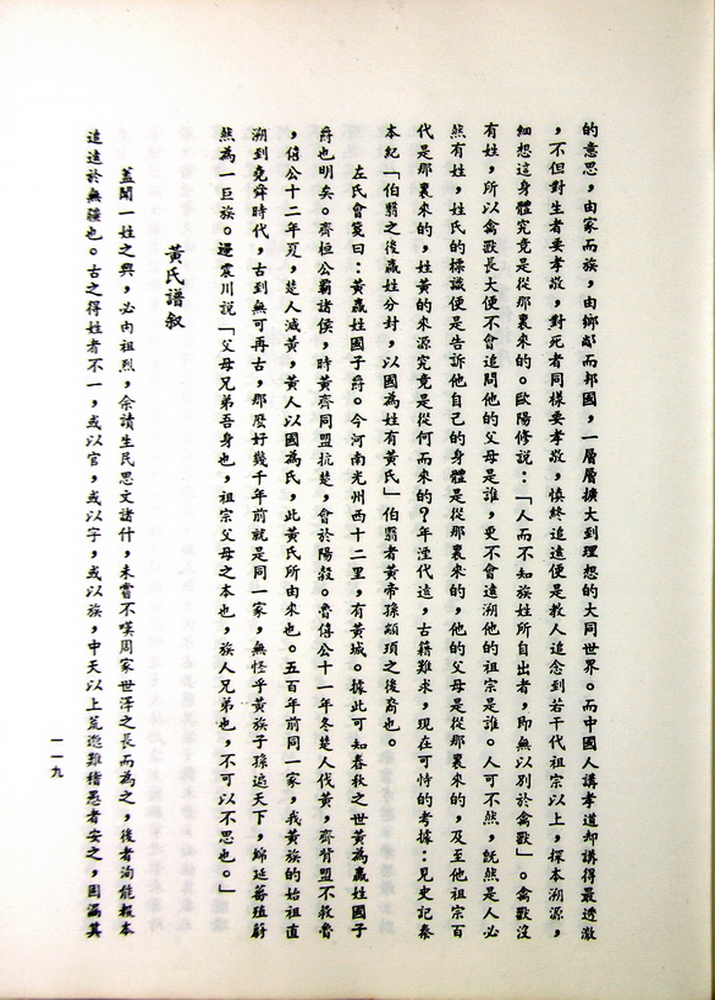 的意思，由家而族，由鄉鄰而邦國，一層層擴大到理想的大同世界。而中國人講孝道却講得最透澈
，不但對生者要孝敬，對死者同樣要孝敬，慎終追遠便是教人追念到若干代祖宗以上，探本溯源，
細想這身體究竟是從那裏來的。歐陽修說：「人而不知族姓所自出者，即無以別於禽獸」。禽獸沒
有姓，所以禽獸長大便不會追問他的父母是誰，更不會遠溯他的祖宗是誰。人可不然，既然是人必
然有姓，姓氏的標識便是告訴他自己的身體是從那裏來的，他的父母是從那裏來的，及至他祖宗百
代是那裏來的，姓黃的來源究竟是從何而來的？年湮代遠，古籍難求，現在可恃的考據：見史記秦
本紀「伯翳之後嬴姓分封，以國為姓有黃氏」伯翳者黃帝孫顓頊之後裔也。
左氏會箋曰：黃嬴姓國子爵。今河南光州西十二里，有黃城。據此可知春秋之世黃為嬴姓國子
爵也明矣。齊桓公霸諸侯，時黃齊同盟抗楚，會於陽穀。魯僖公十一年冬楚人伐黃，齊背盟不救魯
，僖公十二年夏，楚人滅黃，黃人以國為氏，此黃氏所由來也。五百年前同一家，我黃族的始祖直
溯到堯舜時代，古到無可再古，那麼好幾千年前就是同一家，無怪乎黃族子孫遍天下，綿延蕃殖蔚
然為一巨族。邊震川說「父母兄弟吾身也，祖宗父母之本也，族人兄弟也，不可以不思也。」
黃氏譜叙
蓋聞一姓之興，必由祖烈，余讀生民思文諸什，未嘗不嘆周家世澤之長而為之，後者洵能報本
追遠於無疆也。古之得姓者不一，或以官，或以字，或以族，中天以上荒邈難稽愚者安之，因漏其
一一九